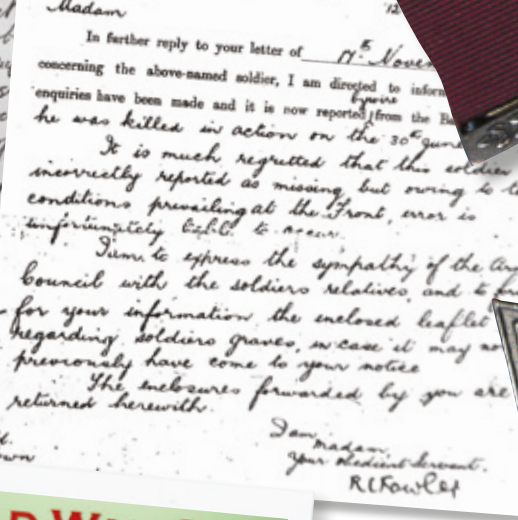 Madam
12
In further reply to your letter of 17th Novem
concerning the above-named soldier, I am directed to inform
enquiries have been made and it is now reported by wire from the Ba
he was killed in action on the 30th June
It is much regretted that this soldier
incorrectly reported as missing, but owing to t
conditions prevailing at the Front, error is
unfortunately liable to occur.
I am to express the sympathy of the Ar
Council with the soldiers relatives, and to
for your information the enclosed leaflet
regarding soldiers graves, in case it may no
previously have come to your notice
The enclosures forwarded by you are
returned herewith.
I am,
Madam,
Your Obedient Servant.
d.
own
R C Fowler
D W